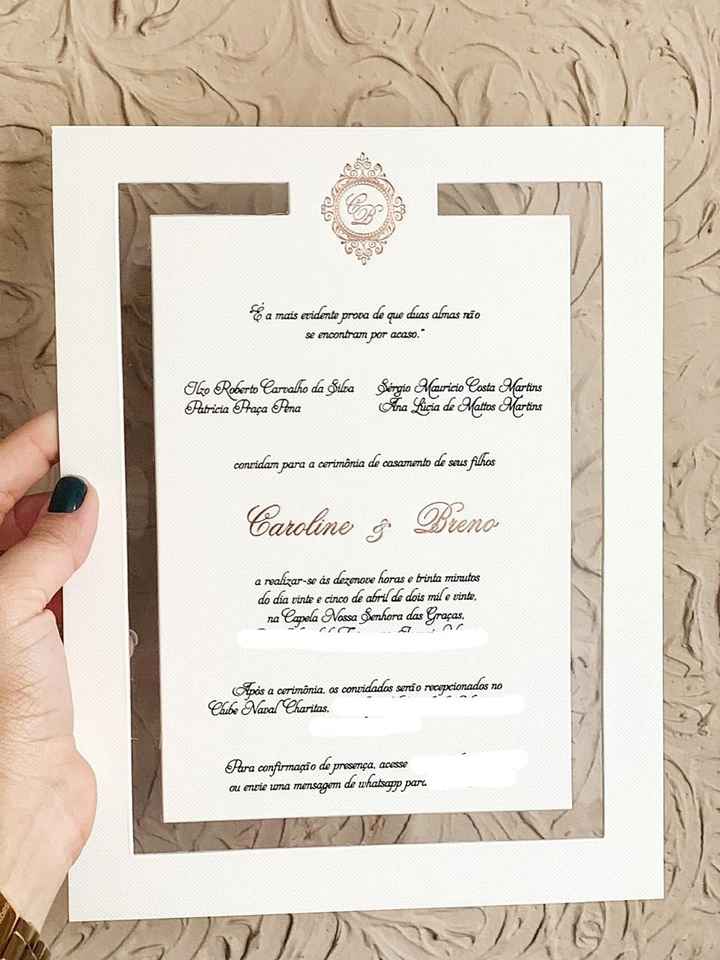 CB
"É a mais evidente prova de que duas almas não
se encontram por acaso."
Ilzo Roberto Carvalho da Silva
Patricia Praça Pena
Sérgio Mauricio Costa Martins
Ana Lúcia de Mattos Martins
convidam para a cerimônia de casamento de seus filhos
Caroline & Breno
a realizar-se às dezenove horas e trinta minutos
do dia vinte e cinco de abril de dois mil e vinte,
na Capela Nossa Senhora das Graças,
Após a cerimônia, os convidados serão recepcionados no
Clube Naval Charitas,
Para confirmação de presença, acesse
ou envie uma mensagem de whatsapp para